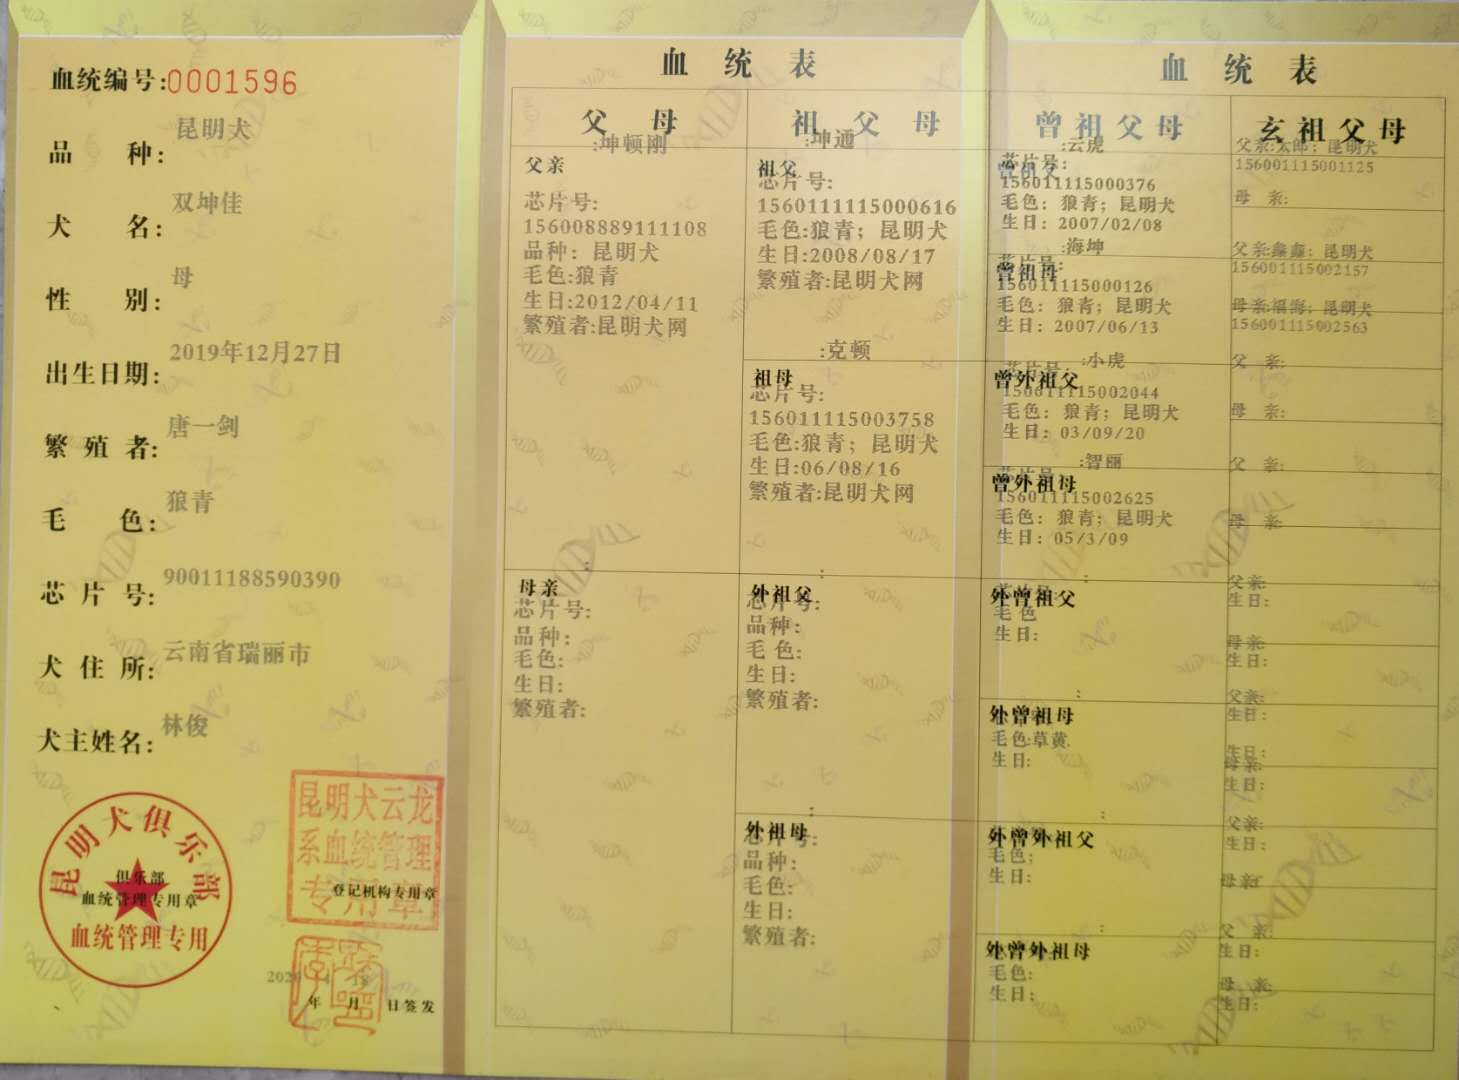 血统编号:0001596
昆明犬
品 种:
双坤佳
犬 名:
母
性 别:
2019年12月27日
出生日期:
唐一剑
繁 殖 者:
狼青
毛 色:
90011188590390
芯 片 号:
云南省瑞丽市
犬 住 所:
林俊
犬主姓名:
昆明犬俱乐部
俱乐部
血统管理专用章
血统管理专用
昆明犬云龙
系血统管理
专用章
登记机构专用章
年 月 日签发
血 统 表
父 母
:坤顿刚
父亲
芯片号:
156008889111108
品种: 昆明犬
毛色:狼青
生日:2012/04/11
繁殖者:昆明犬网
:
母亲
芯片号:
品种:
毛色:
生日:
繁殖者:
祖 父 母
:坤通
祖父
芯片号:
1560111115000616
毛色:狼青; 昆明犬
生日:2008/08/17
繁殖者:昆明犬网
:克顿
祖母
芯片号:
156011115003758
毛色:狼青; 昆明犬
生日:06/08/16
繁殖者:昆明犬网
:
外祖父
芯片号:
品种:
毛 色:
生日:
繁殖者:
:
外祖母
芯片号:
品种:
毛色:
生日:
繁殖者:
血 统 表
曾祖父母
:云虎
曾祖父
芯片号:
156011115000376
毛色: 狼青; 昆明犬
生日: 2007/02/08
:海坤
芯片号:
曾祖母
156011115000126
毛色: 狼青; 昆明犬
生日: 2007/06/13
:小虎
芯片号:
曾外祖父
156011115002044
毛色: 狼青; 昆明犬
生日: 03/09/20
:智丽
芯片号:
曾外祖母
156011115002625
毛色: 狼青; 昆明犬
生日: 05/3/09
:
芯片号:
外曾祖父
毛色
生日:
:
外曾祖母
毛色:草黄.
生日:
:
外曾外祖父
毛色:
生日:
:
外曾外祖母
毛色:
生日:
玄祖父母
父亲:太郎: 昆明犬
156001115001125
母 亲:
父亲:鑫鑫: 昆明犬
156001115002157
母亲:福海: 昆明犬
156001115002563
父 亲:
母 亲:
父 亲:
母 亲:
父亲:
生日:
母亲:
生日:
父亲:
生日:
生日:
母亲:
生日:
父亲:
生日:
母亲:
父 亲:
生日:
母 亲:
生日: